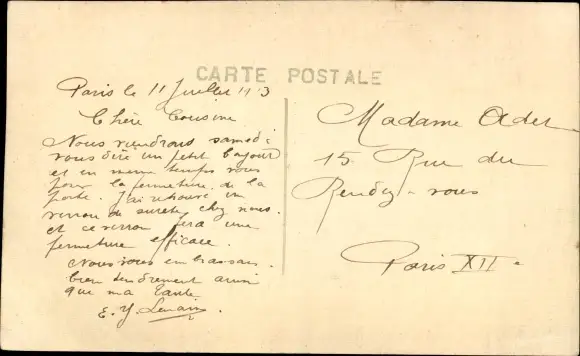 CARTE POSTALE
Paris le 11 Juillet 113
Chère Cousine
Nous viendrons samedi
vous dire un petit bonjour
et en même temps vous
pour la fermeture de la
porte. J'ai retrouvé un
verrou de sureté chez nous.
et ce verrou fera une
fermeture efficace.
Nous vous embrassons
bien tendrement ainsi
que ma tante
E. Y. Lenain.
Madame Ader
15. Rue du
Rendez-vous
Paris XII e